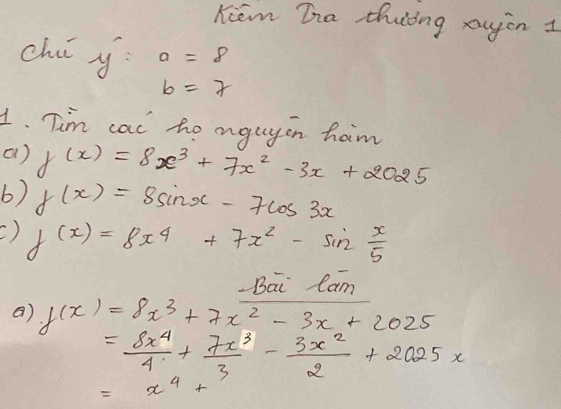 Kiểm Tra thường xuyên 1
Chú ý: a = 8
b = 7
1. Tìm các họ nguyên hàm
a) f(x) = 8x³ + 7x² - 3x + 2025
b) f(x) = 8sinx - 7cos 3x
c) f(x) = 8x⁴ + 7x² - sin x/5
Bài làm
a) f(x) = 8x³ + 7x² - 3x + 2025
= 8x⁴/4 + 7x³/3 - 3x²/2 + 2025x
= x⁴ +